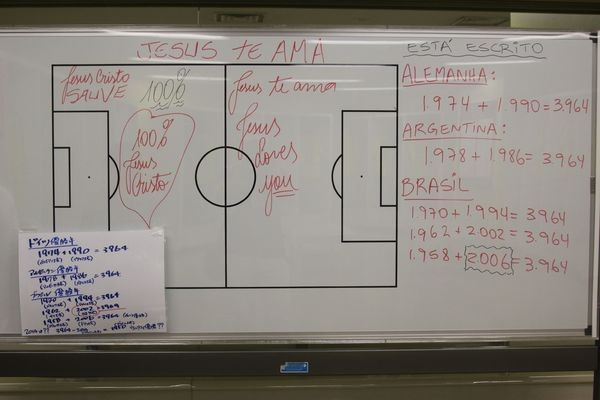 JESUS TE AMA
Jesus Cristo
SALVE
100%
100%
Jesus
Cristo
Jesus te ama
Jesus
Loves
you
ESTÁ ESCRITO
ALEMANHA:
1.974 + 1.990 = 3.964
ARGENTINA:
1.978 + 1.986 = 3.964
BRASIL
1.970 + 1.994 = 3964
1.962 + 2002 = 3.964
1.958 + 2006 = 3.964
ドイツ優勝年
1974 + 1990 = 3964
アルゼンチン優勝年
1978 + 1986 = 3964
優勝年
1970 + 1994 = 3964
1962 + 2002 = 3964
1958 + 2006 = 3964